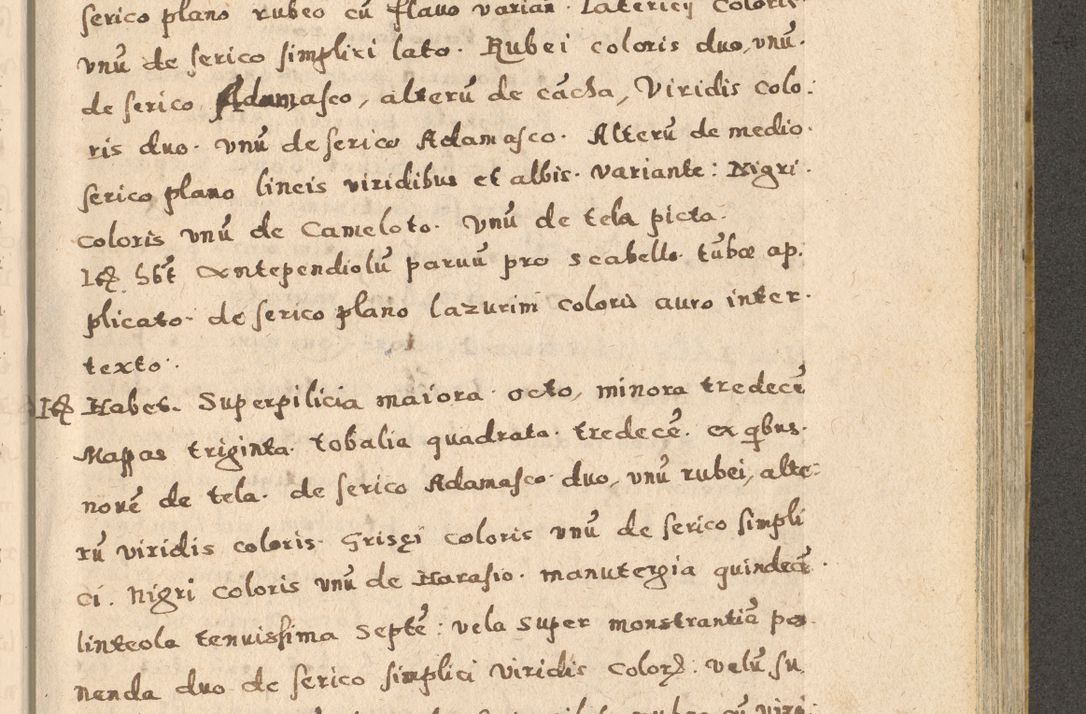 serico plano rubeo cū flavo varian. Latericij coloris
vnū de serico simplici lato. Rubei coloris duo, vnū.
de serico Adamasco, alterū de cācha, Viridis colo:
ris duo. vnū de serico Adamasco. Alterū de medio.
serico plano lineis viridibus et albis. variante: Nigri.
coloris vnū de Cameloto. Vnū de tela picta.
Itē hēt Antependiolū parvuū pro scabello tūbæ ap:
plicato. de serico plano lazurini coloris auro inter.
texto.
Itē Habet. Superpilicia maiora. octo, minora tredecē
Mappas triginta. tobalia quadrata. tredecē. ex qbus.
novē de tela. de serico Adamasco duo, vnū rubei, alte:
rū viridis coloris. Grisęi coloris vnū de serico simpli
ci. Nigri coloris vnū de Harasio. manutergia quindecē.
linteola tenuissima septē: vela super monstrantiā po
nenda duo de serico simplici viridis color. velū su